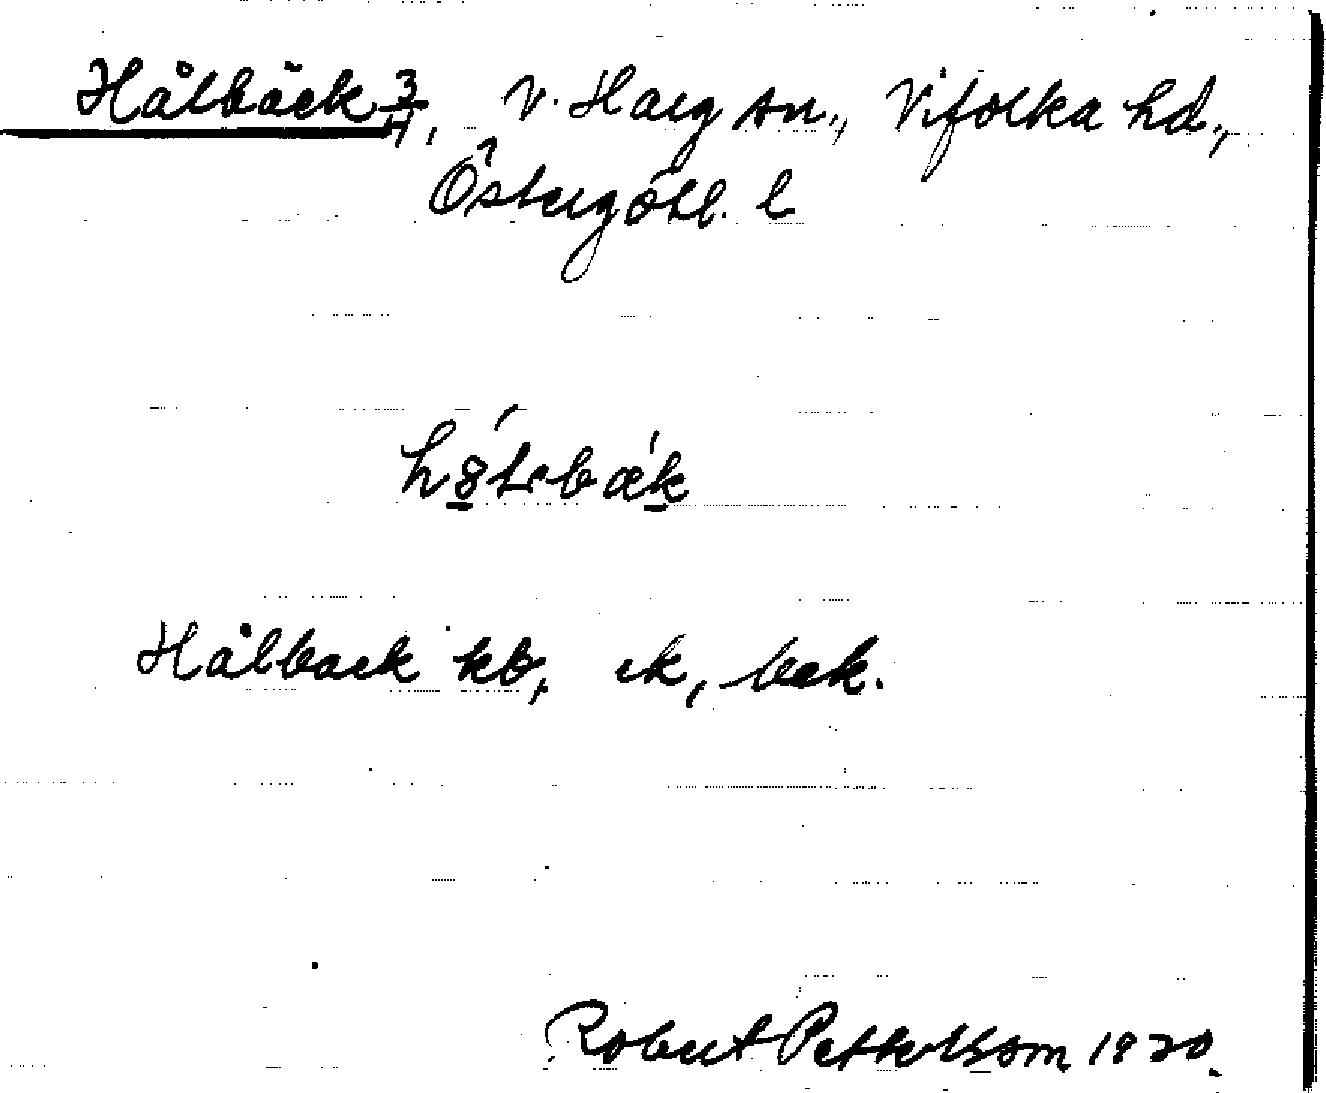 Hålbäck 3/4, V. Harg sn., Vifolka hd.,
Östergötl. l
Hålbäck kb, ek, bek.
Robert Petterson 1920.